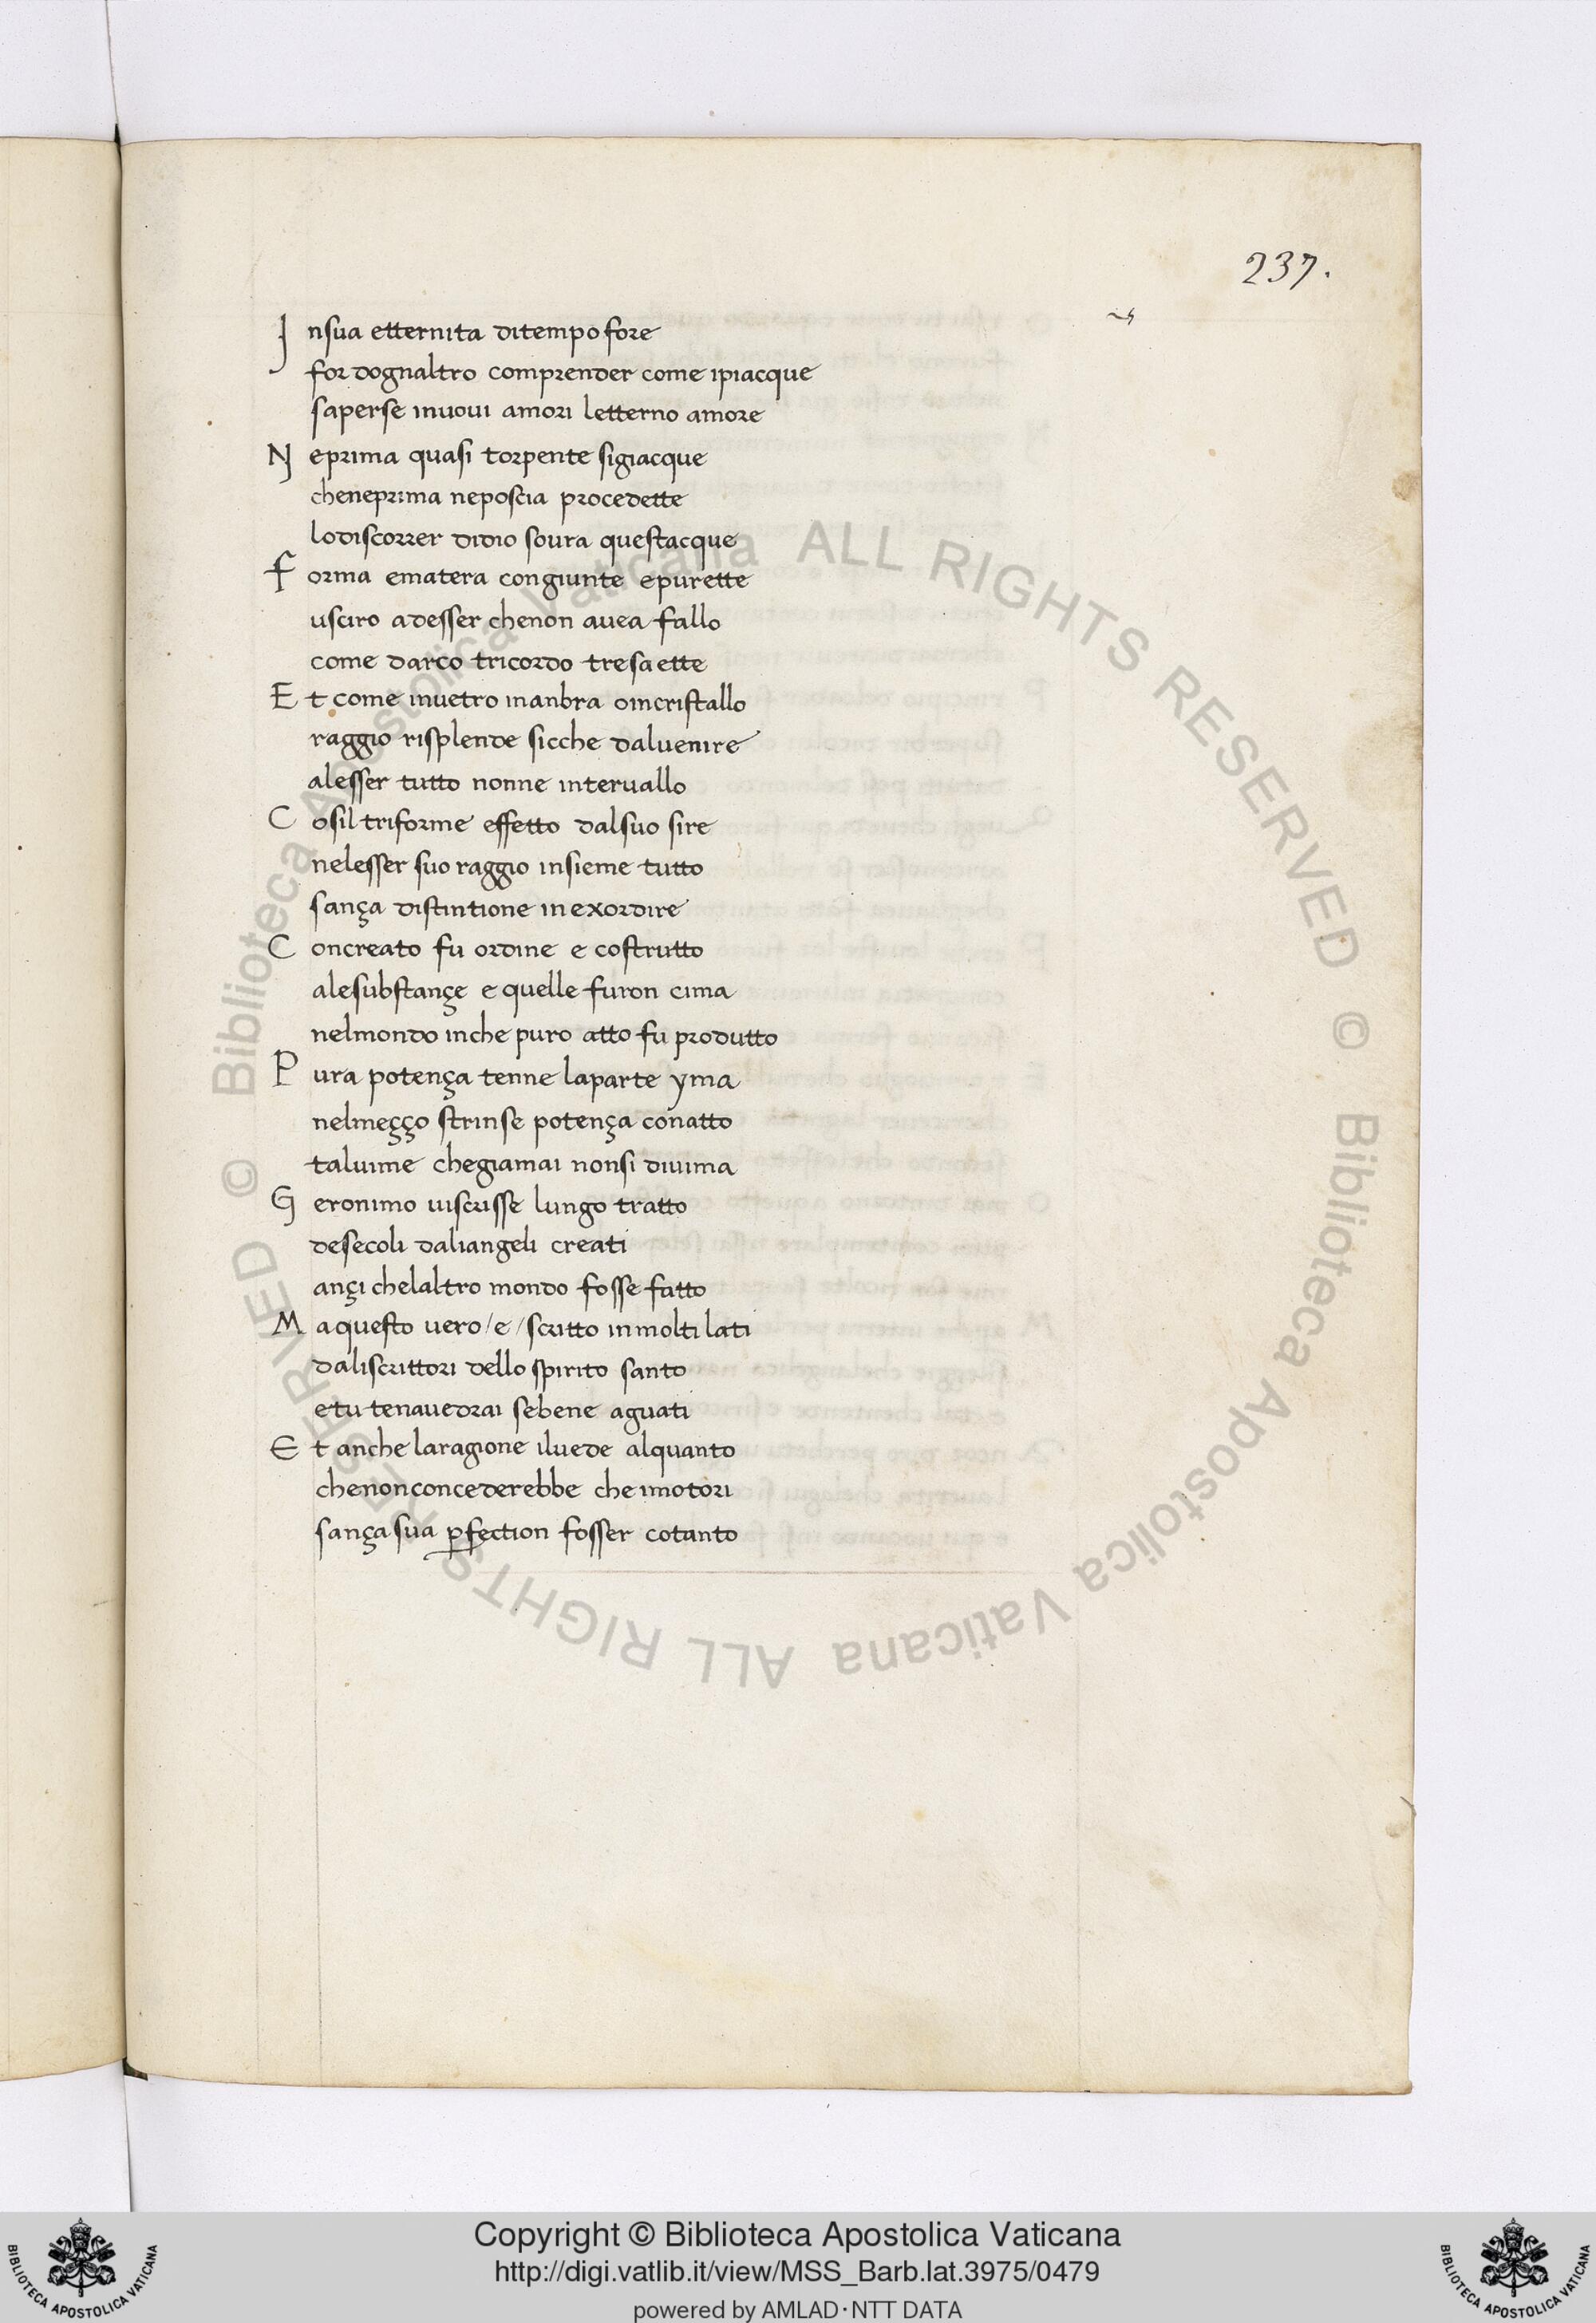 237.
Jnsua etternita ditempo fore
for dognaltro comprender come ipiacque
saperse innovi amori letterno amore
Neprima quasi torpente sigiacque
cheneprima neposcia procedette
lodiscorrer didio soura questacque
Forma ematera congiunte epurette
usciro adesser chenon auea fallo
come darco tricordo tresaette
Et come inuetro inanbra oincristallo
raggio risplende sicche daluenire
alesser tutto nonne interuallo
Cosil triforme effetto dalsuo sire
nelesser suo raggio insieme tutto
sança distintione inexordire
Concreato fu ordine e costrutto
alesubstançe e quelle furon cima
nelmondo inche puro atto fu produtto
Pura potença tenne laparte yma
nelmeçço strinse potença conatto
taluime chegiamai nonsi diuima
Geronimo uiscrisse lungo tratto
desecoli daliangeli creati
ançi chelaltro mondo fosse fatto
Maquesto uero/e/scritto inmolti lati
daliscrittori dello spirito santo
etu tenauedrai sebene aguati
Et anche laragione iluede alquanto
chenonconcederebbe che imotori
sança sua ꝑfection fosser cotanto
© Biblioteca Apostolica Vaticana ALL RIGHTS RESERVED © Biblioteca Apostolica Vaticana ALL RIGHTS RESERVED
Copyright © Biblioteca Apostolica Vaticana
http://digi.vatlib.it/view/MSS_Barb.lat.3975/0479
powered by AMLAD·NTT DATA
BIBLIOTECA APOSTOLICA VATICANA
BIBLIOTECA APOSTOLICA VATICANA